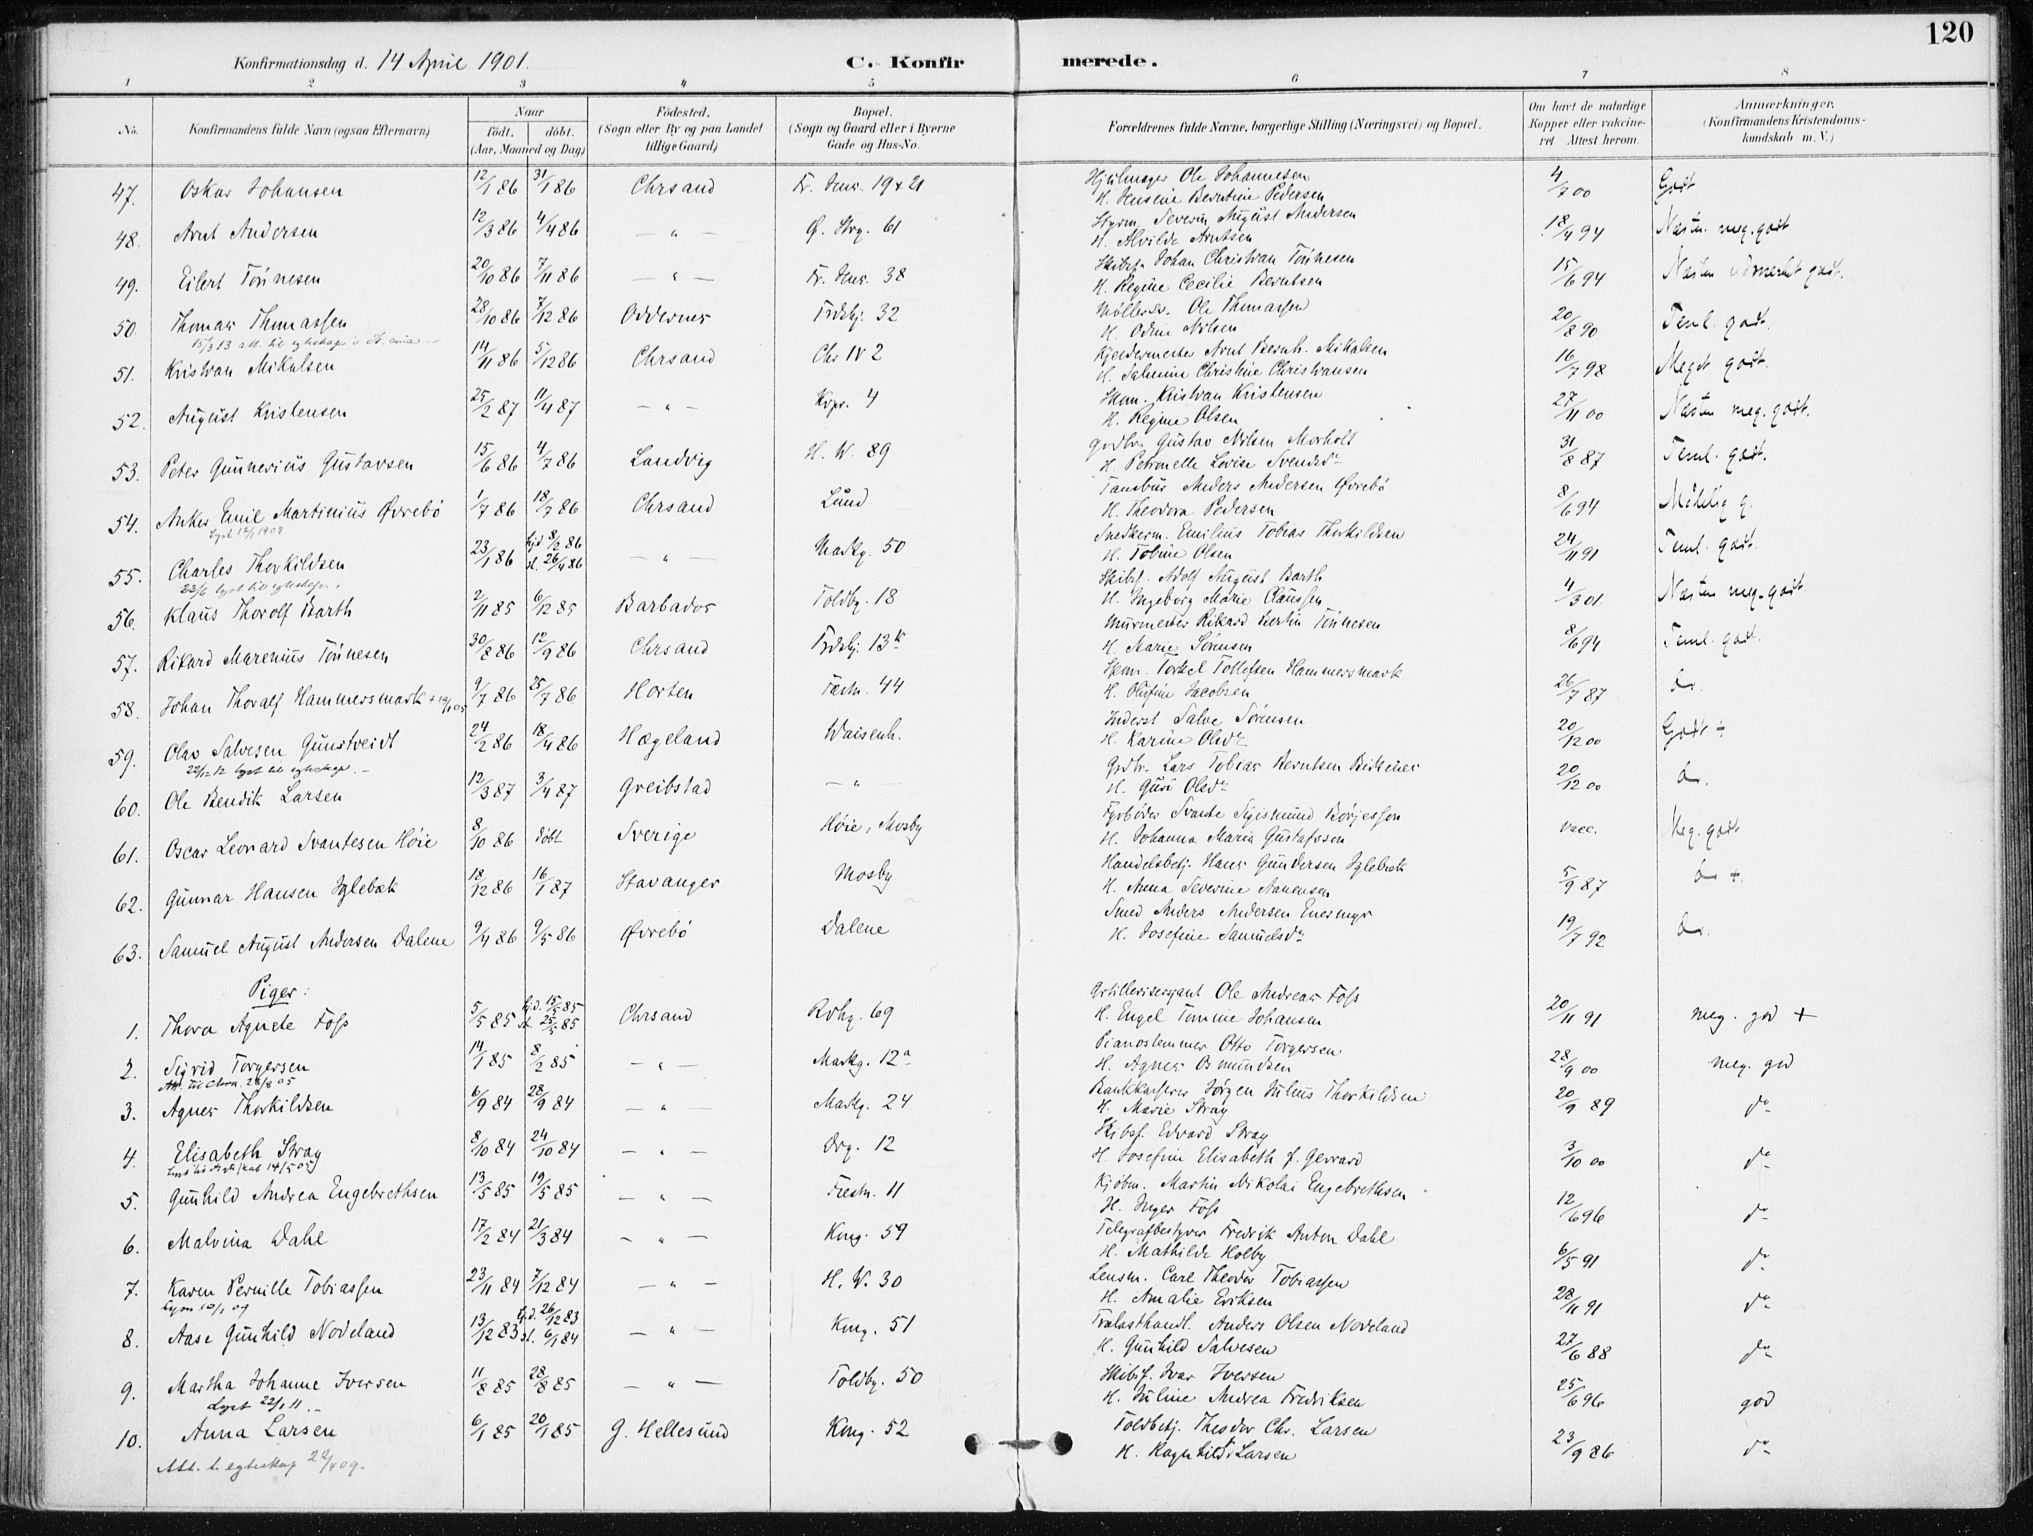 120
Konfirmationsdag d. 14 April 1901. C. Konfirmerede.
1 2 3 4 5 6 7 8
No. Konfirmandens fulde Navn (ogsaa Efternavn) Naar født. døbt. (Aar, Maaned og Dag) Fødested. (Sogn eller By og paa Landet tillige Gaard) Bopæl. (Sogn og Gaard eller i Byerne Gade og Hus-No. Forældrenes fulde Navne, borgerlige Stilling (Næringsvei) og Bopæl. Om havt de naturlige Kopper eller vakcineret. Attest herom. Anmærkninger. (Konfirmandens Kristendomskundskab m. V.)
47. Oskar Johansen 12/1 86 31/1 86 Chrsand Fr. Henr. 19 & 21 Hjulmager Ole Johannesen 4/7 00 Godt
H. Hensine Berntine Pedersen
48. Arnt Andersen 12/3 86 4/4 86 — " — Ø. Strg. 61 Styrm. Severin August Andersen 18/4 94 Næsten meg. godt
H. Alvilde Arntsen
49. Eilert Tönnesen 20/10 86 7/11 86 — " — Fr. Henr. 38 Skibsf. Johan Christian Tönnesen 15/6 94 Næsten udmerket godt.
H. Regine Cecilie Berntsen
50. Thomas Thomassen 28/10 86 7/12 86 Oddernes Frdskj. 32 Møllersv. Ole Thomassen 20/8 90 Teml. godt.
15/3 13 att. til egteskap i
H. Odine Nilsen
51. Kristian Mikalsen 14/11 86 5/12 86 Chrsand Chr IV 2 Kjeldermester Arnt Bernh. Mikalsen 16/7 98 Meget godt.
H. Salmine Christine Christiansen
52. August Kristensen 25/2 87 11/4 87 — " — Kvpr. 4 Skom. Kristian Kristensen 27/11 00 Næsten meg. godt.
H. Regine Olsen
53. Peter Gunnerius Gustavsen 15/6 86 4/7 86 Landvig H. W. 89 Grdbr. Gustav Nilsen Morholt 31/8 87 Teml. godt.
H. Petronelle Lovise Svendsdr
54. Ankes Emil Martinius Øvrebö 1/7 86 18/7 86 Chrsand Lund Landbus Anders Andersen Øvrebö 8/6 94 Mådelig g.
Lyst 12/1 1908
H. Theodora Pedersen
55. Charles Thorkildsen 23/1 86 hjd 8/2 86 st. 26/4 86 — " — Markg. 50 Snedkerm. Emilius Tobias Thorkildsen 24/11 91 Teml. godt.
22/6 lyst til egteskap.
H. Tobine Olsen
56. Klaus Thorolf Barth 2/11 85 6/12 85 Barbados Toldbg. 18 Skibsf. Adolf August Barth 4/3 01 Næsten meg. godt
H. Ingeborg Marie Claussen
57. Rikard Marenius Tönnesen 30/8 86 12/9 86 Chrsand Frdskj. 13 b Murmester Rikard Bertin Tönnesen 8/6 94 Teml. godt.
H. Marie Sørensen
58. Johan Thoralf Hammersmark + 19/1 05 9/7 86 25/7 86 Horten Fæstn. 44 Skom. Torkel Tollefsen Hammersmark 26/7 87 do.
H. Olufine Jacobsen
59. Olav Salvesen Gunstveidt 24/2 86 18/4 86 Hægeland Waisenh. Inderst Salve Sørensen 20/12 00 Godt +
22/12 12 lyst til egteskap. —
H. Karine Olsdr
60. Ole Bendik Larsen 12/3 87 3/4 87 Greibstad — " — Grdbr. Lars Tobias Berntsen Birkenes 20/12 00 do.
H. Guri Olsdr
61. Oscar Leonard Svantesen Høie 8/10 86 døbt Sverige Høie, Mosby Fyrbøder Svante Sigismund Börjesson vacc. Meg. godt
H. Johanna Maria Gustafsson
62. Gunnar Hansen Iglebæk 18/12 86 16/1 87 Stavanger Mosby Handelsbetj. Hans Gundersen Iglebæk 5/9 87 do +.
H. Anna Severine Aanensen
63. Samuel August Andersen Dalene 9/4 86 9/5 86 Øvrebö Dalene Smed Anders Andersen Enermyr 19/7 92 do.
H. Josefine Samuelsdr
Piger:
1. Thora Agnete Foss 5/5 85 hjd. 15/5 85 st. 25/5 85 Chrsand Rvhg. 69 Artillerisergant Ole Andreas Foss 20/11 91 meg. god +
H. Engel Tomine Johansen
2. Sigrid Torgersen 14/1 85 8/2 85 — " — Markg. 12 a Pianostemmer Otto Torgersen 28/9 00 meg. god
Att. til Chra. 28/8 05
H. Agnes Osmundsen
3. Agnes Thorkildsen 6/9 84 28/9 84 — " Markg. 24 Bankkasserer Jørgen Julius Thorkildsen 20/9 89 do
H. Marie Stray
4. Elisabeth Stray 8/10 84 24/10 84 — " — Drg. 12 Skibsf. Edvard Stray 3/10 00 do
14/5 05
H. Josefine Elisabeth f. Gerrard
5. Gunhild Andrea Engebrethsen 13/5 85 19/5 85 — " — Fæstn. 11 Kjöbm. Martin Nikolai Engebrethsen 12/6 96 do
H. Inger Foss
6. Malvina Dahl 17/2 84 21/3 84 — " — Kong. 59 Telegrafbestyrer Fredrik Anton Dahl 6/5 91 do
H. Mathilde Holby
7. Karen Pernille Tobiassen 23/11 84 7/12 84 — " — H. W. 30 Lensm. Carl Theodor Tobiassen 28/11 91 do
Lyst 10/1 09
H. Amalie Eriksen
8. Aase Gunhild Nodeland 13/12 83 hjd. 26/12 83 st. 6/1 84 — " — Kong. 51 Trælasthandl. Anders Olsen Nodeland 27/6 88 do
H. Gunhild Salvesen
9. Martha Johanne Iversen 11/8 85 28/8 85 — " — Toldbg. 50 Skibsf. Ivar Iversen 25/6 96 god
Lyst 22/1 11. —
H. Juline Andrea Fredriksen
10. Anna Larsen 6/1 85 20/1 85 G. Hellesund Kong. 52 Toldbetj. Theodor Chr. Larsen 23/9 86 do
Att. t. egteskap 22/4 09.
H. Ragnhild Larsen